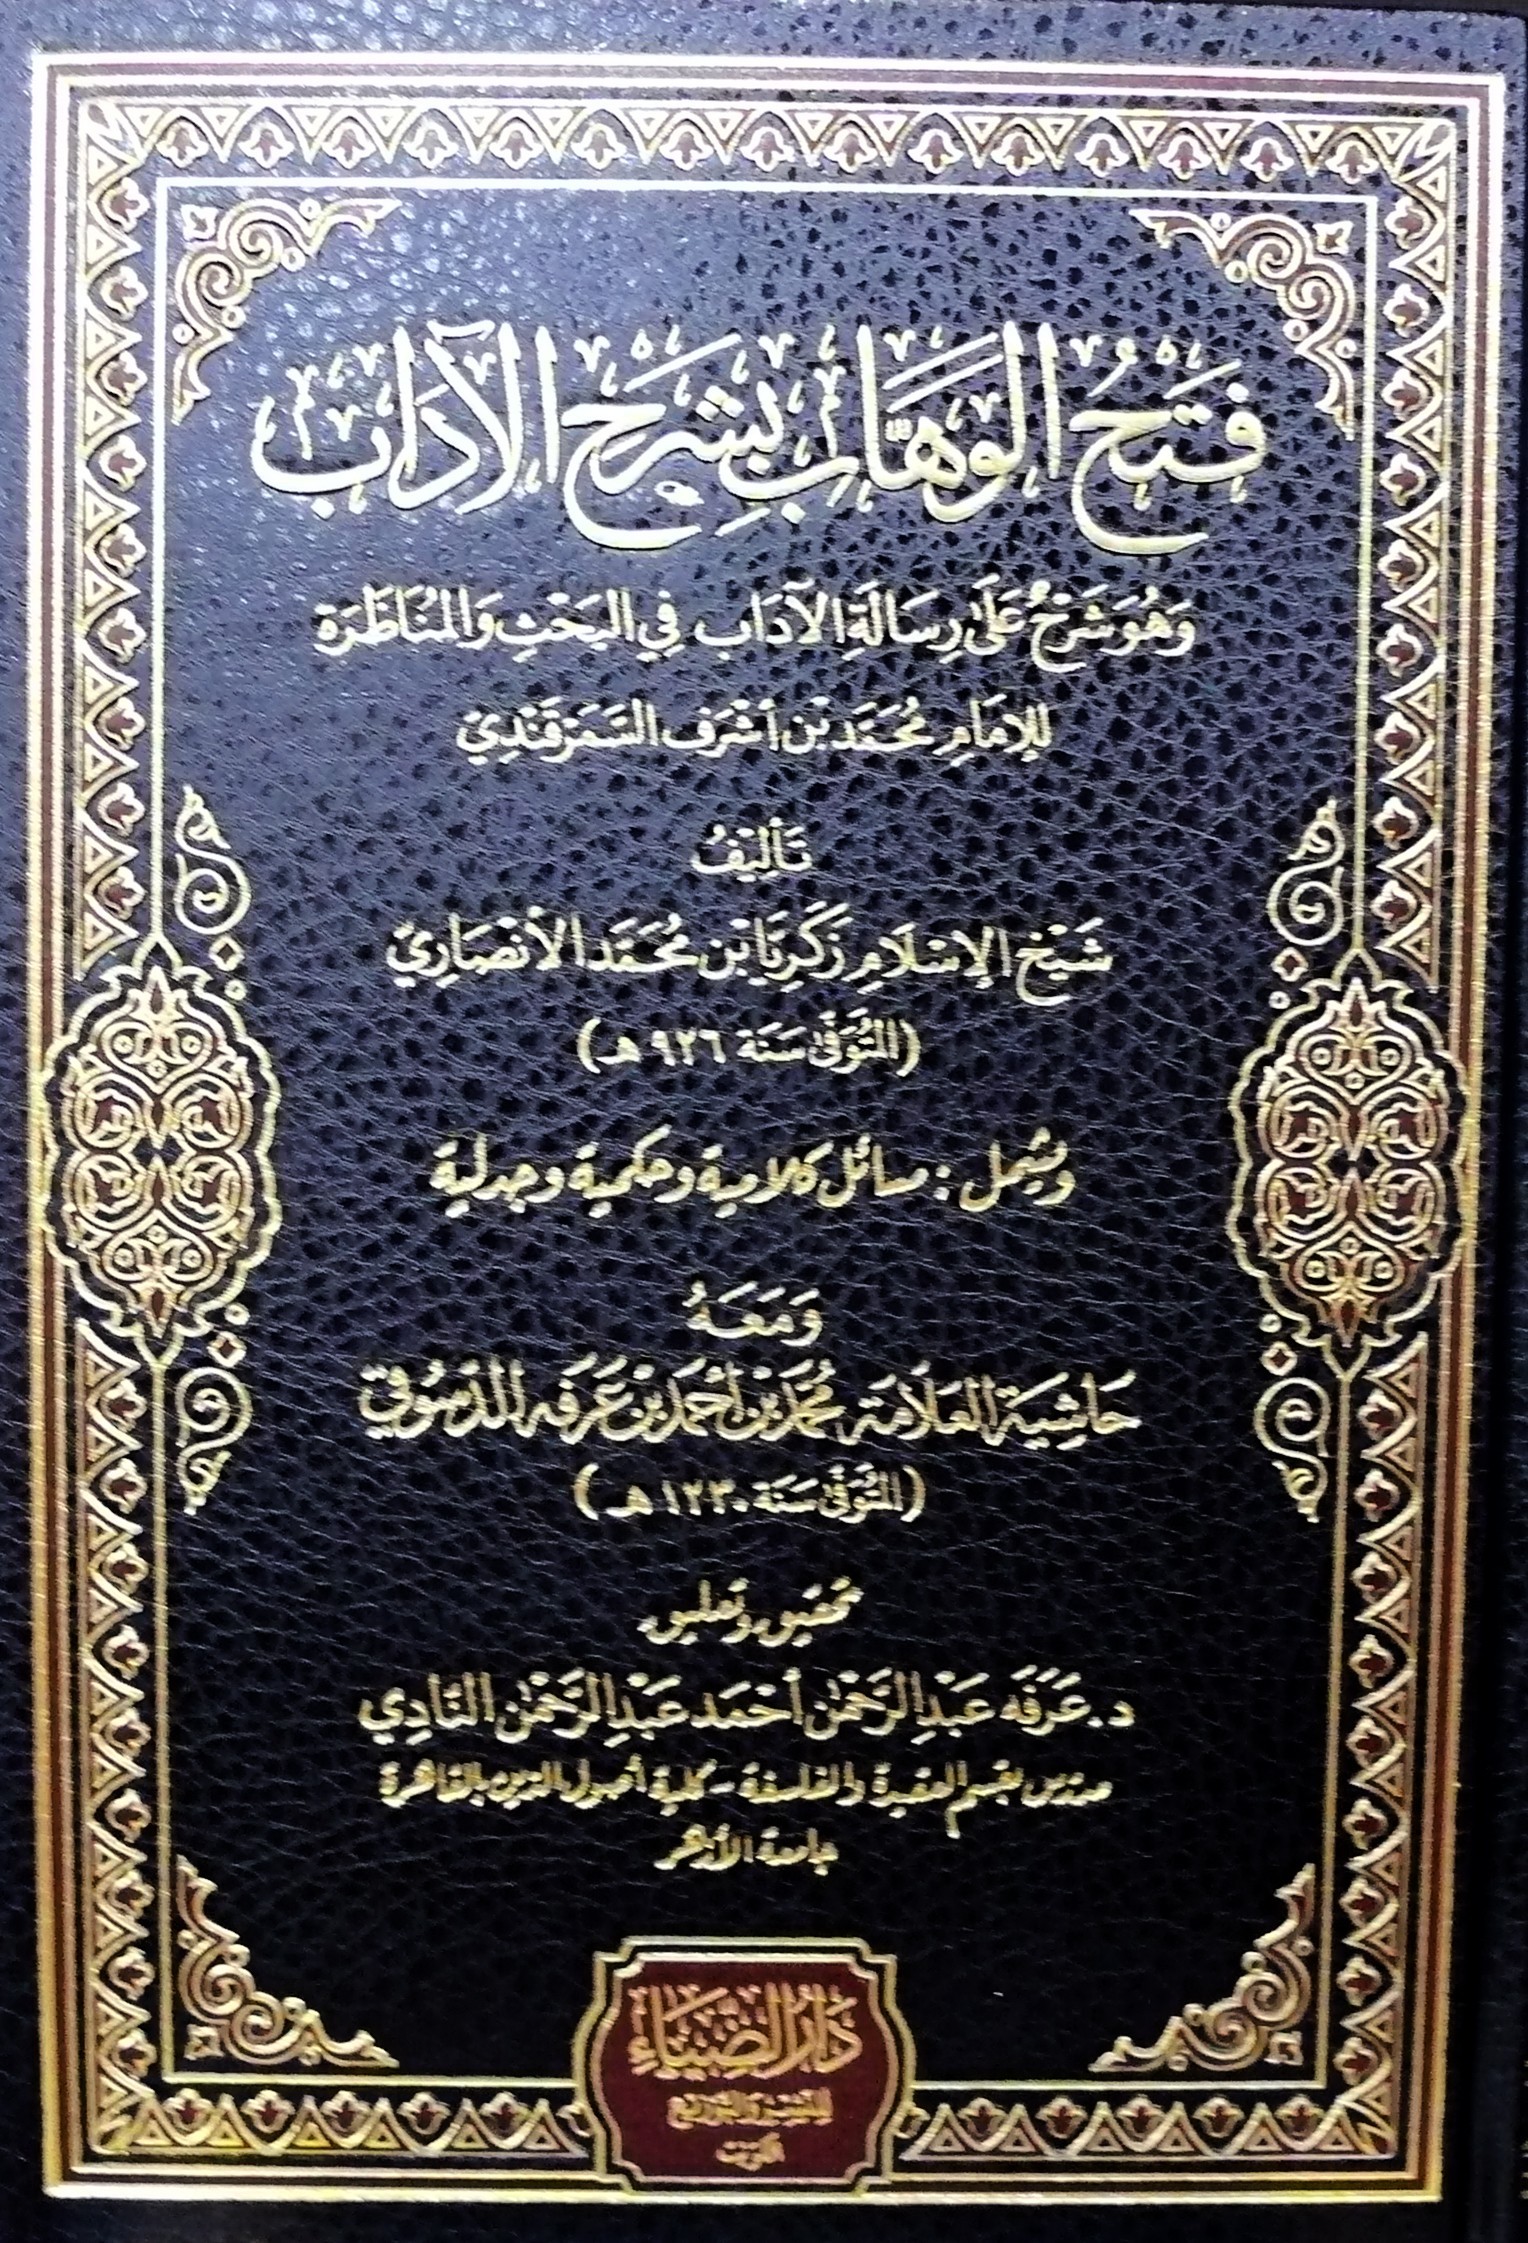 فَتْحُ الوَهَّابِ بِشَرْحِ الآدَابِ
وَهُوَ شَرْحٌ عَلَى رِسَالَةِ الآدَابِ فِي البَحْثِ وَالمُنَاظَرَةِ
لِلإِمَامِ مُحَمَّد بْن أَشْرَف السَّمَرْقَنْدِيّ
تَألِيْفُ
شَيْخ الإِسْلَامِ زَكَرِيَّا بْن مُحَمَّد الأَنْصَارِيّ
(المُتَوَفَّى سَنَة ٩٢٦ هـ)
ويشمل : مسائل كلامية وحكمية وجدلية
وَمَعَهُ
حَاشِيَة العَلَّامَة مُحَمَّد بْن أَحْمَد بْن عَرَفَه الدُّسُوْقِيّ
(المُتَوَفَّى سَنَة ١٢٣٠ هـ)
تحقيق وتعليق
د. عَرَفَه عَبْد الرَّحْمٰن أَحْمَد عَبْد الرَّحْمٰن النَّادِي
مدرس بقسم العقيدة والفلسفة - كلية أصول الدين بالقاهرة
جامعة الأزهر
دَارُ الضِّيَاءِ
للنشر والتوزيع
الكويت